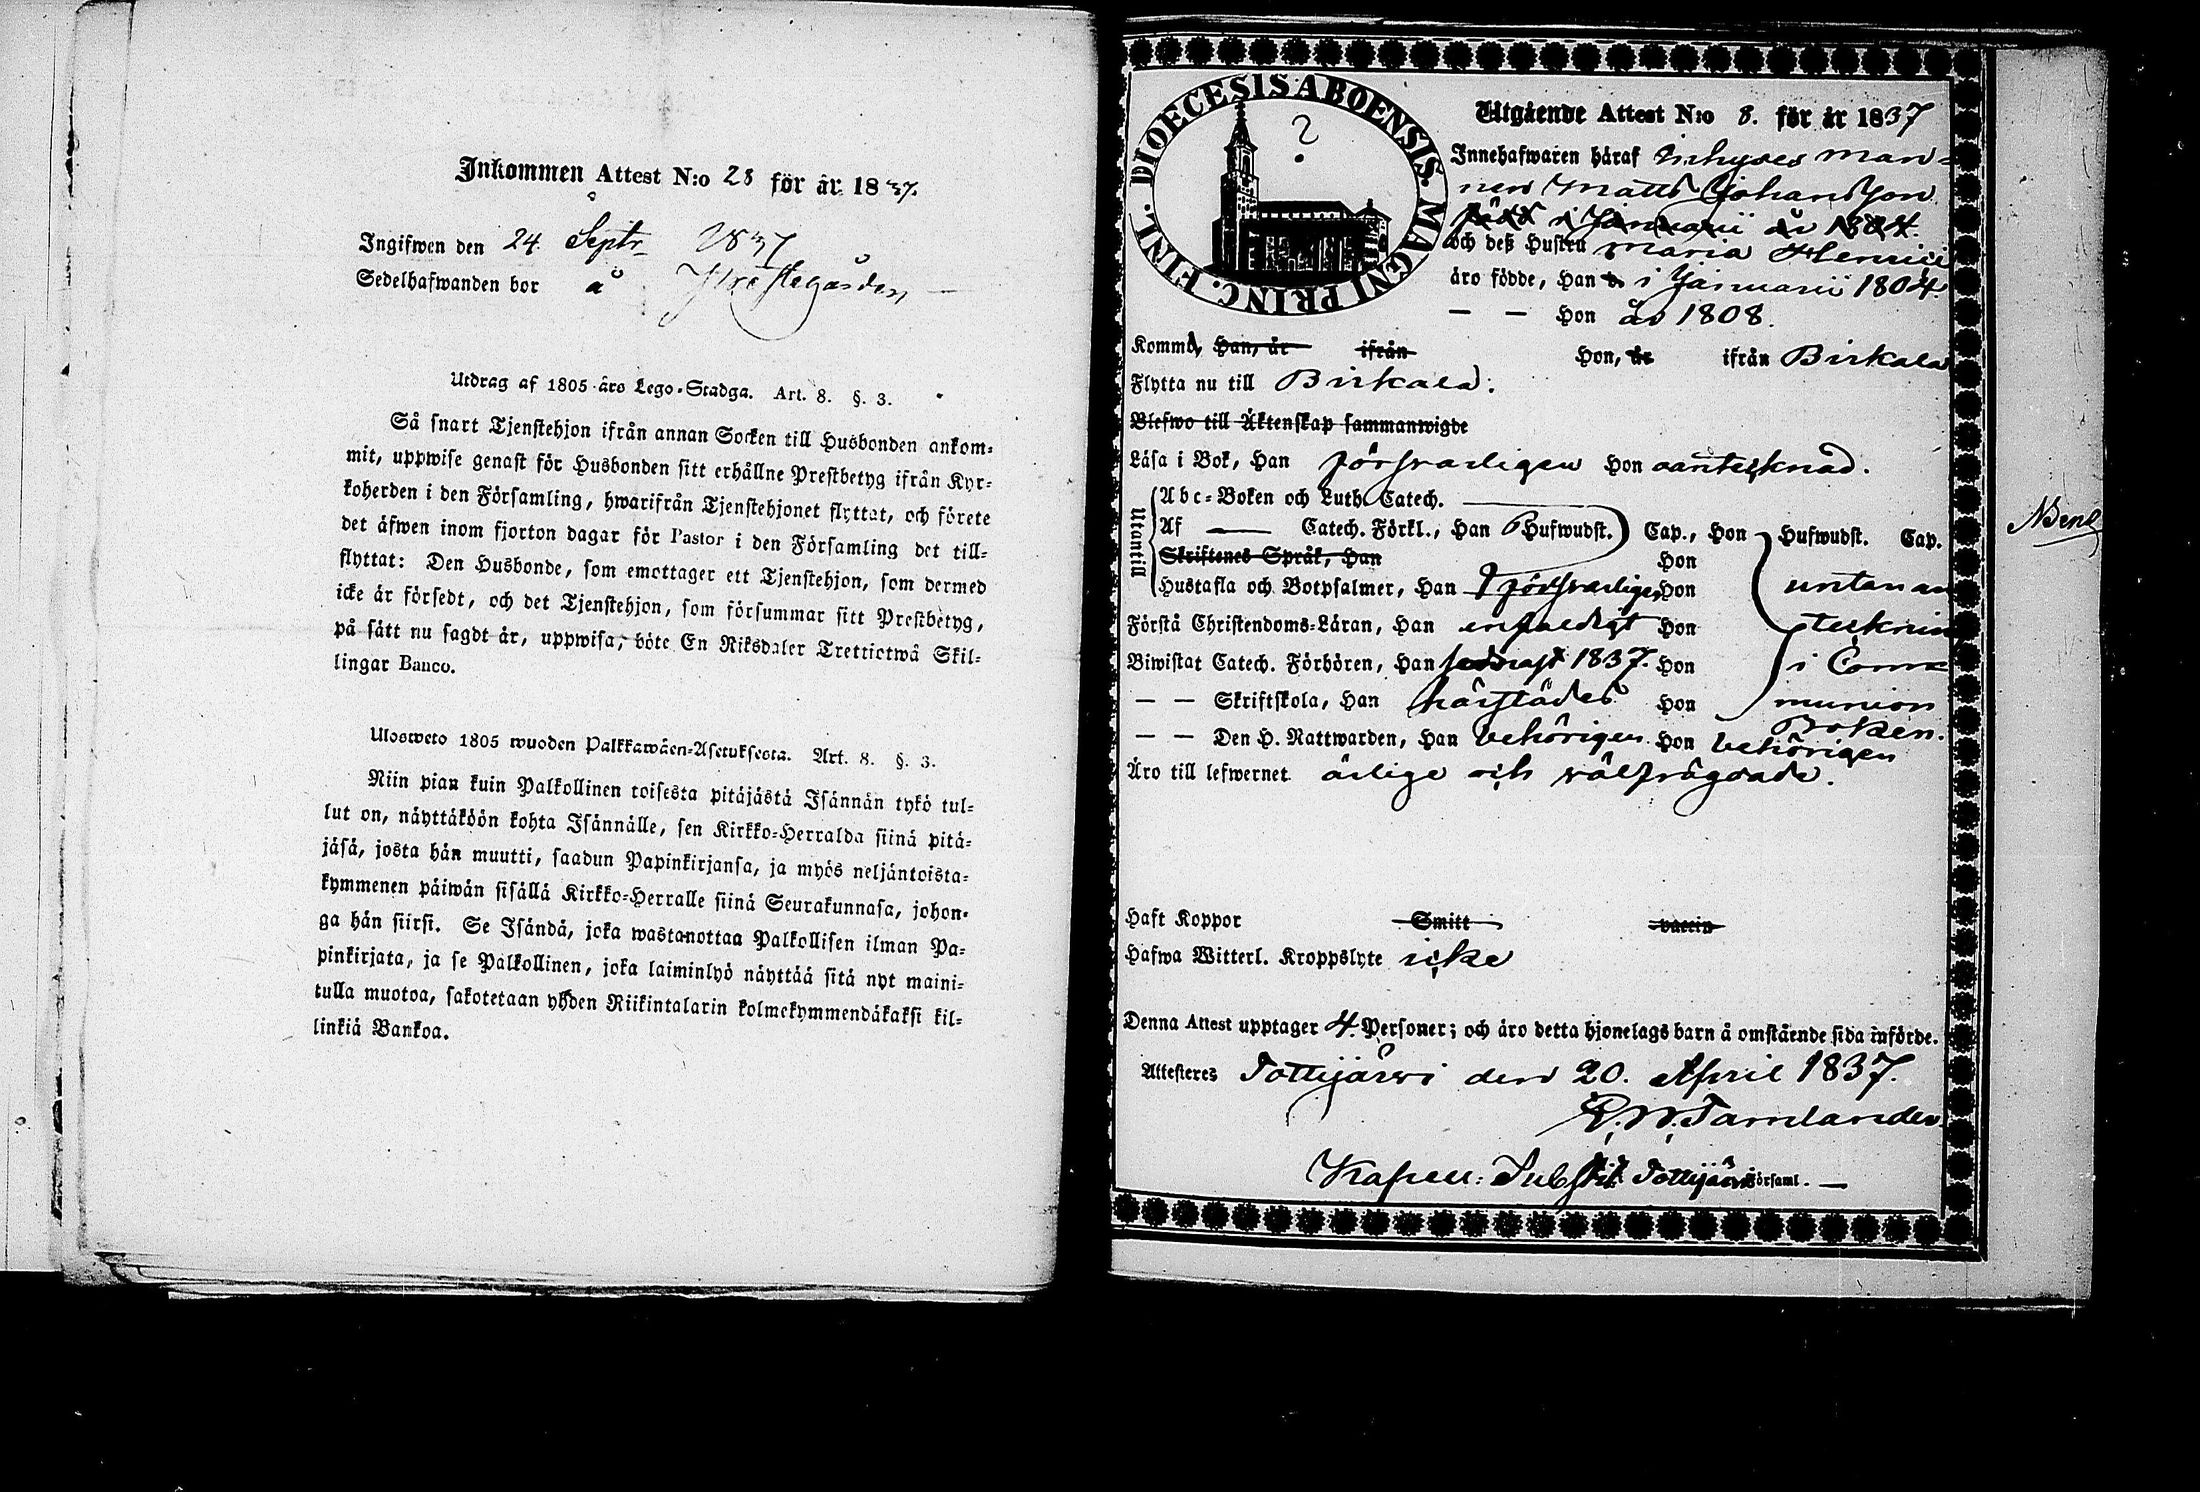 Inkommen Attest N:o 28 för år 1837.
Ingifwen den 24 Septr 1837
Sedelhafwanden bor å Prestegården
Utdrag af 1805 års Lego-Stadga. Art. 8. §. 3.
Så snart Tjenstehjon ifrån annan Socken till Husbonden ankom-
mit, uppwise genast för Husbonden sitt erhållne Prestbetyg ifrån Kyr-
koherden i den Församling, hwarifrån Tjenstehjonet flyttat, och förete
det äfwen inom fjorton dagar för Pastor i den Församling det till-
flyttat: Den Husbonde, som emottager ett Tjenstehjon, som dermed
icke är försedt, och det Tjenstehjon, som försummar sitt Prestbetyg,
på sätt nu sagdt är, uppwisa, böte En Riksdaler Trettiotwå Skil-
lingar Banco.
Ulosweto 1805 wuoden Palkkawäen-Asetuksesta. Art. 8. §. 3.
Niin pian kuin Palkollinen toisesta pitäjästä Isännän tykö tul-
lut on, näyttäköön kohta Isännälle, sen Kirkko-Herralda siinä pitä-
jäsä, josta hän muutti, saadun Papinkirjansa, ja myös neljäntoista-
kymmenen päiwän sisällä Kirkko-Herralle siinä Seurakunnasa, johon-
ga hän siirsi. Se Isändä, joka wastanottaa Palkollisen ilman Pa-
pinkirjata, ja se Palkollinen, joka laiminlyö näyttää sitä nyt maini-
tulla muotoa, sakotetaan yhden Riikintalarin kolmekymmendäkaksi kil-
linkiä Bankoa.
DIOECESIS ABOENSIS. MAGNI PRINC. FINL.
?
Utgående Attest N:o 8. för år 1837
Innehafwaren häraf Inhyses man-
nen Matts Johansson
född i Januarii år 1804.
och deß Hustru Maria Henrici
äro födde, Han d. i Januarii 1804.
— — Hon år 1808.
Kommo, Han, år ifrån Hon, år ifrån Birkala
Flytta nu till Birkala.
Blefwo till Äktenskap sammanwigde
Läsa i Bok, Han försvarligen Hon oantecknad.
Utantill
Abc-Boken och Luth. Catech.
Af — Catech. Förkl., Han Hufwudst. Cap., Hon Hufwudst. Cap.
Skriftenes Språk, Han Hon
Hustafla och Botpsalmer, Han försvarligen Hon untan an
Förstå Christendoms-Läran, Han enfaldigt Hon teckning
Biwistat Catech. Förhören, Han sednast 1837. Hon i Com
— — Skriftskola, Han härstädes Hon munion
Boken.
— — Den H. Nattwarden, Han behörigen Hon behörigen
Äro till lefwernet ärlige och välfrägdade.
Haft Koppor Smitt vaccin
Hafwa Witterl. Kroppslyte icke
Denna Attest upptager 4. Personer; och äro detta hjonelags barn å omstående sida införde.
Attesteres Tottijärvi den 20. April 1837.
Tamlander
Kapell: Subst: Tottijärvi Församl. —